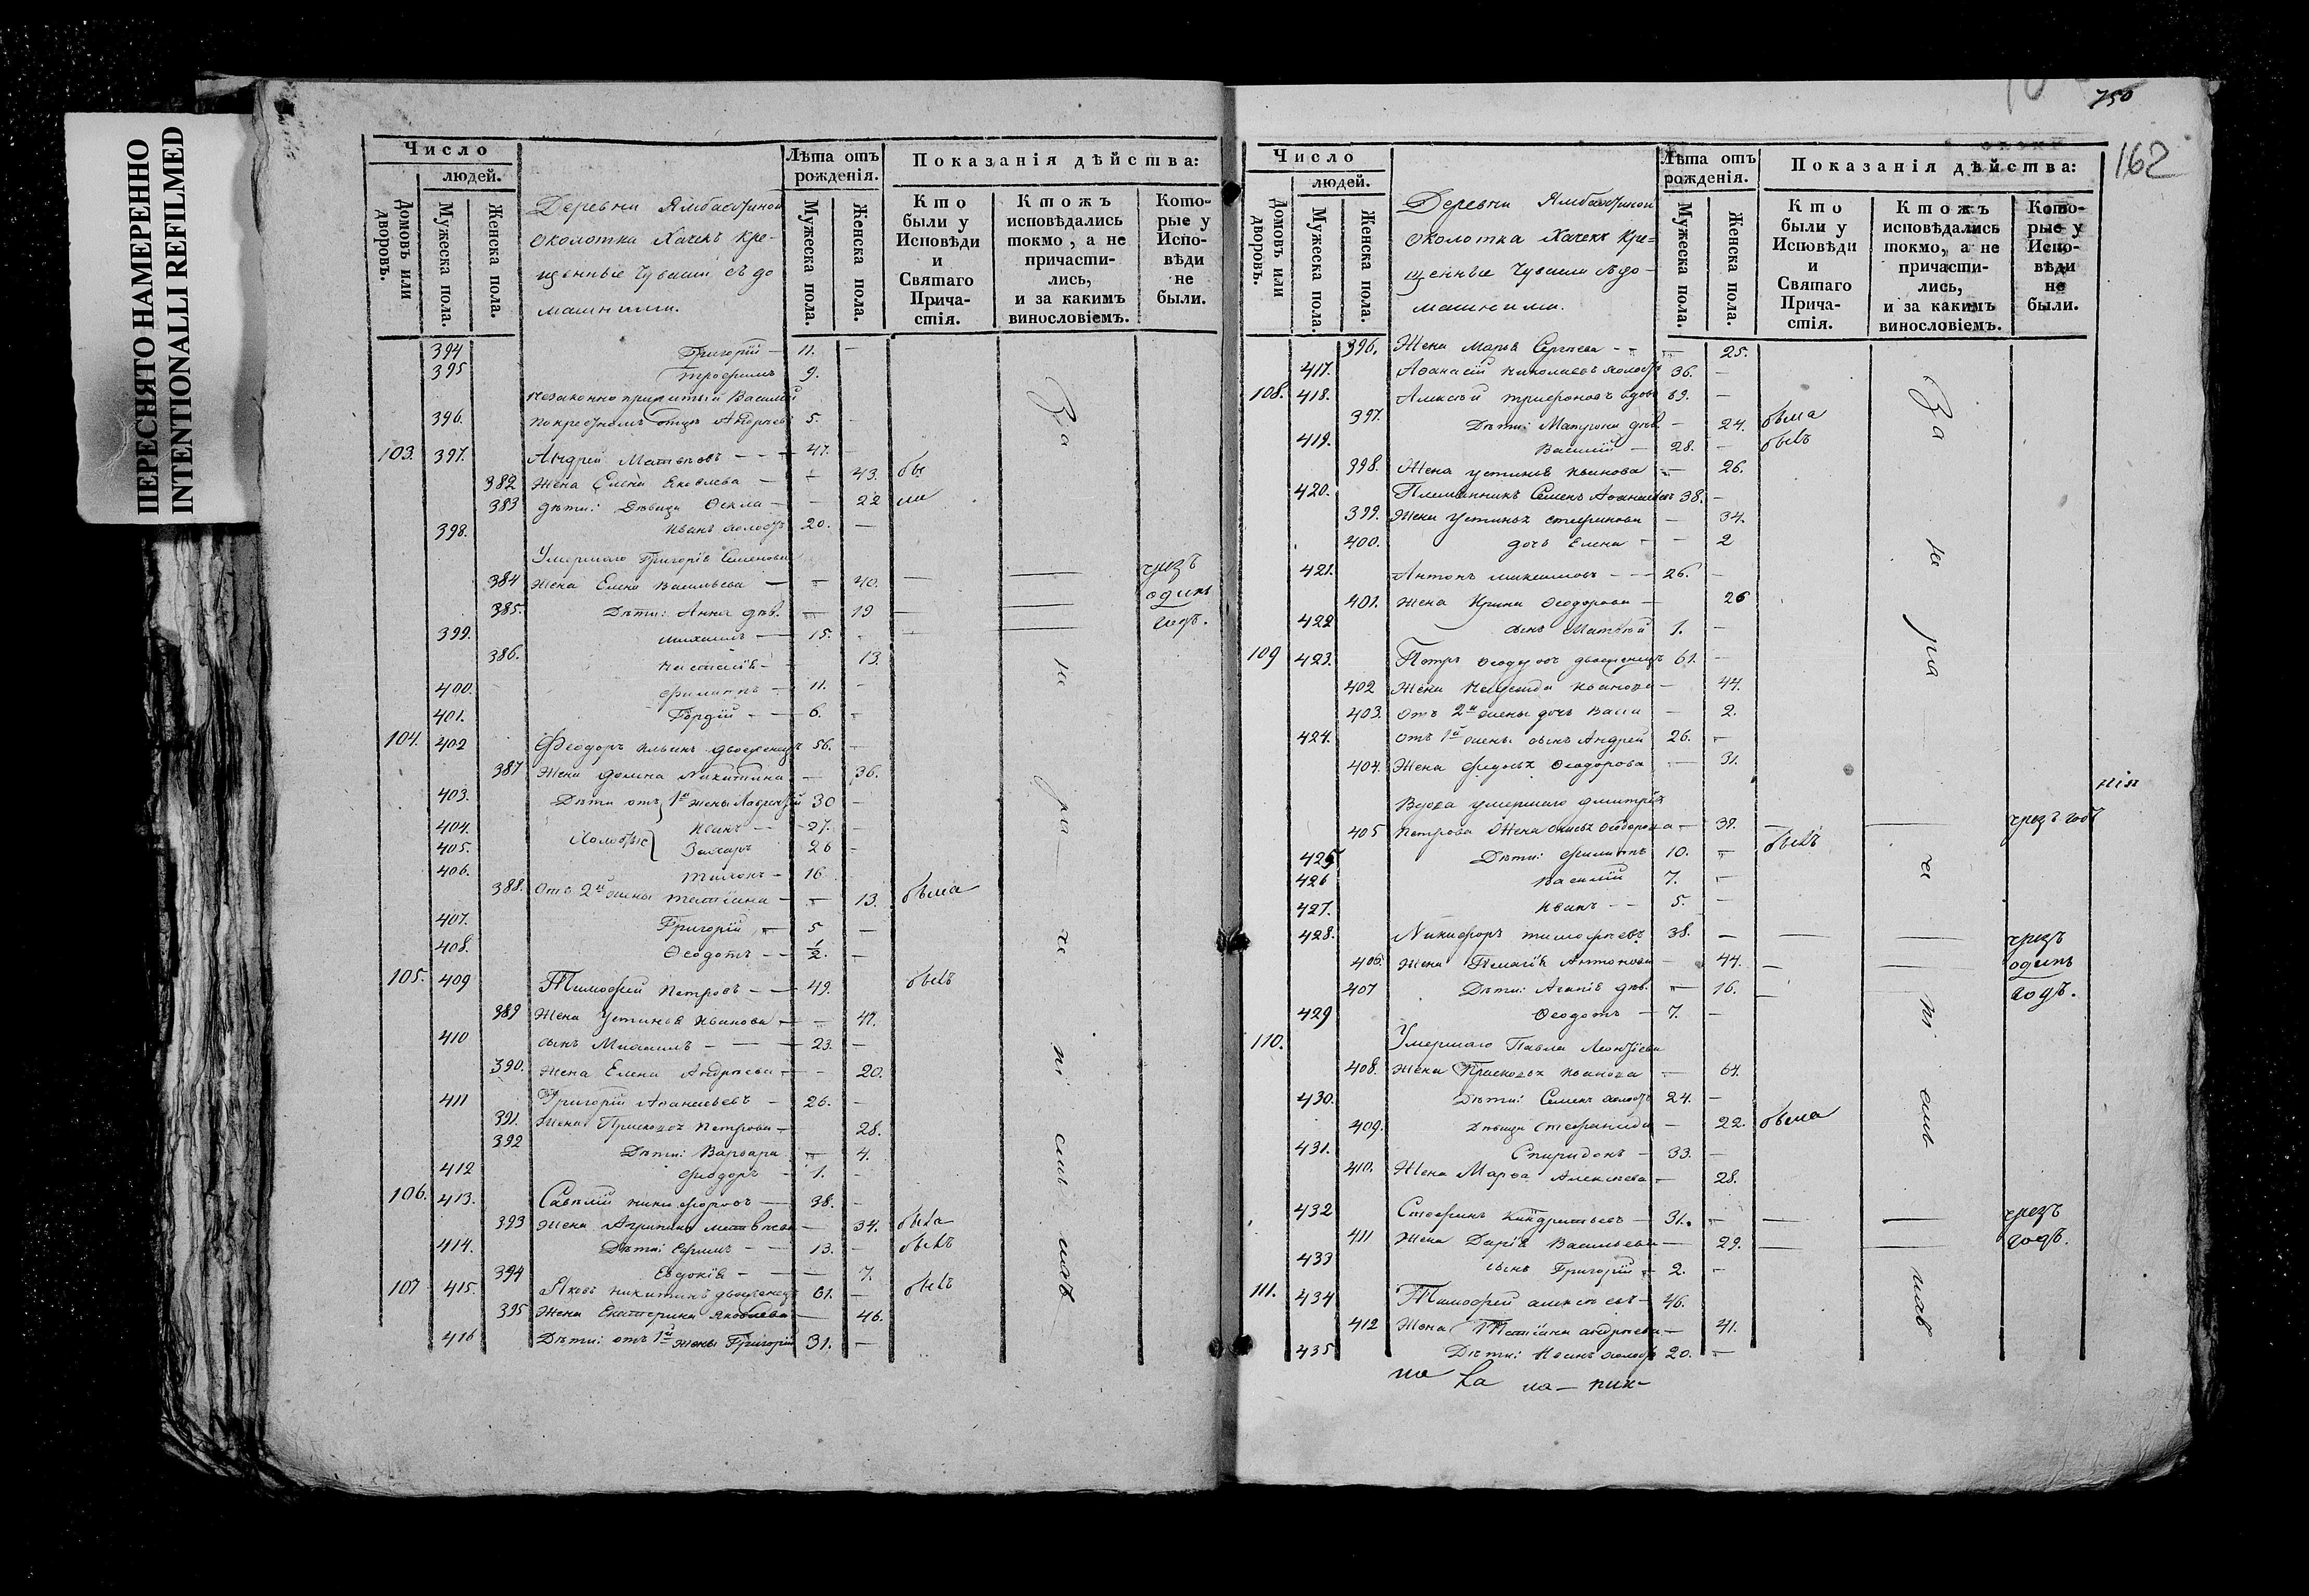 ПЕРЕСНЯТО НАМЕРЕННО
INTENTIONALLI REFILMED
Число
людей.
Домовъ или дворовъ.
Мужеска пола.
Женска пола.
Деревни Ямбахтиной
околотка Хачекъ кре-
щенные Чуваши съ до
машними.
Лѣта отъ рожденія.
Мужеска пола.
Женска пола.
Показанія дѣйства:
Кто были у Исповѣди и Святаго Прича-стія.
Ктожъ исповѣдались токмо, а не причасти-лись, и за какимъ винословіемъ.
Кото-рые у Испо-вѣди не были.
394 Григорій — 11. —
395 Трофимъ 9. —
незаконно прижитый Василій
396. по крестномъ отцѣ Андреевъ 5. —
103. 397. Андрей Матвѣевъ — 47. —
382 Жена Елена Яковлева — 43. бы
383 Дѣти: Дѣвица Ѳекла — 22 ли
398. Иванъ холостъ 20. —
Умершаго Григорія Семенова
384 Жена Елена Васильева — 40. — — чрезъ
385. Дѣти: Анна дѣв. — 19 — — одинъ
399. Михаилъ — 15. — — годъ.
386. Наталія — 13.
400. Филиппъ — 11. —
401. Гордій — 6. —
104. 402 Ѳеодоръ Ильинъ двоеженецъ 56. —
387 Жена Домна Никитина — 36.
403. Дѣти отъ 1й жены Лаврентій 30 —
404. Холостые Иванъ — 27. —
405. Захаръ 26 —
406. Тихонъ — 16
388. Отъ 2й жены Татіана — 13. была
407. Григорій — 5 —
408. Ѳеодотъ — 1/2 —
105. 409 Тимофей Петровъ — 49. былъ
389 Жена Устинья Иванова — 47.
410 сынъ Михаилъ — 23. —
390. Жена Елена Андреева — 20.
411 Григорій Афанасьевъ — 26. —
391. Жена Прасковья Петрова — 28.
392 Дѣти: Варвара — 4.
412 Ѳеодоръ — 1. —
106. 413. Савелій Никифоровъ — 38. —
393 Жена Агрипина Матвѣева — 34. была
414. Дѣти: Ефимъ — 13. — былъ
394 Евдокія — 7.
107 415. Яковъ Никитинъ двоеженецъ 61. — былъ
395 Жена Екатерина Яковлева — 46.
416 Дѣти: отъ 1й жены Григорій 31. —
За
не
ра
че
ні
емъ
ихъ
750
162
Число
людей.
Домовъ или дворовъ.
Мужеска пола.
Женска пола.
Деревни Ямбахтиной
околотка Хачекъ кре=
щенные Чуваши съ до-
машними.
Лѣта отъ рожденія.
Мужеска пола.
Женска пола.
Показанія дѣйства:
Кто были у Исповѣди и Святаго Прича-стія.
Ктожъ исповѣдались токмо, а не причасти-лись, и за какимъ винословіемъ.
Кото-рые у Испо-вѣди не были.
396. Жена Марья Сергѣева — 25.
417. Афанасій Николаевъ холостъ 36. —
108. 418. Алексѣй Трифоновъ вдовъ 69. —
397. Дѣти: Матрона дѣв. — 24. была
419. Василій — 28. — былъ
398. Жена Устинья Иванова — 26.
420. Племянникъ Семенъ Афанасьевъ 38. —
399. Жена Устинья Стефанова — 34.
400. дочь Елена — 2
421. Антонъ Максимовъ — 26. —
401. Жена Ирина Ѳеодорова — 26
422 сынъ Матвѣй 1. —
109 423. Петръ Ѳеодоровъ двоеженецъ 61. —
402 Жена Иванова — 44.
403. Отъ 2й жены дочь — 2.
424. отъ 1й жены сынъ Андрей 26. —
404. Жена Ѳедосья Ѳеодорова — 31.
Вдова умершаго Димитрія
405 Петрова Жена Ѳеодорова — 37. — — чрезъ годъ
425 Дѣти: Филиппъ 10. — былъ
426 Василій 7. —
427. Иванъ — 5. —
428. Никифоръ Тимофѣевъ 38. — — — чрезъ
406. Жена Пелагія Антонова — 44. — — одинъ
407 Дѣти: Агапія дѣв. — 16. — годъ.
429 Ѳеодотъ — 7. —
110. Умершаго Павла Леонтіева
408. Жена Прасковья Иванова — 64.
430. Дѣти: Семенъ холостъ 24. —
409. Дѣвица Стефанида — 22. была
431. Спиридонъ — 33. —
410. Жена Марѳа Алексѣева — 28.
432 Стефанъ Киндратьевъ — 31. — — — чрезъ
411 Жена Дарія Васильева — 29. — — годъ.
433 сынъ Григорій — 2. —
111. 434 Тимофей Алексѣевъ — 46.
412 Жена Татіана Андреева — 41.
435 Дѣти: Иванъ холостъ 20. —
За
не
ра
че
ні
емъ
ихъ